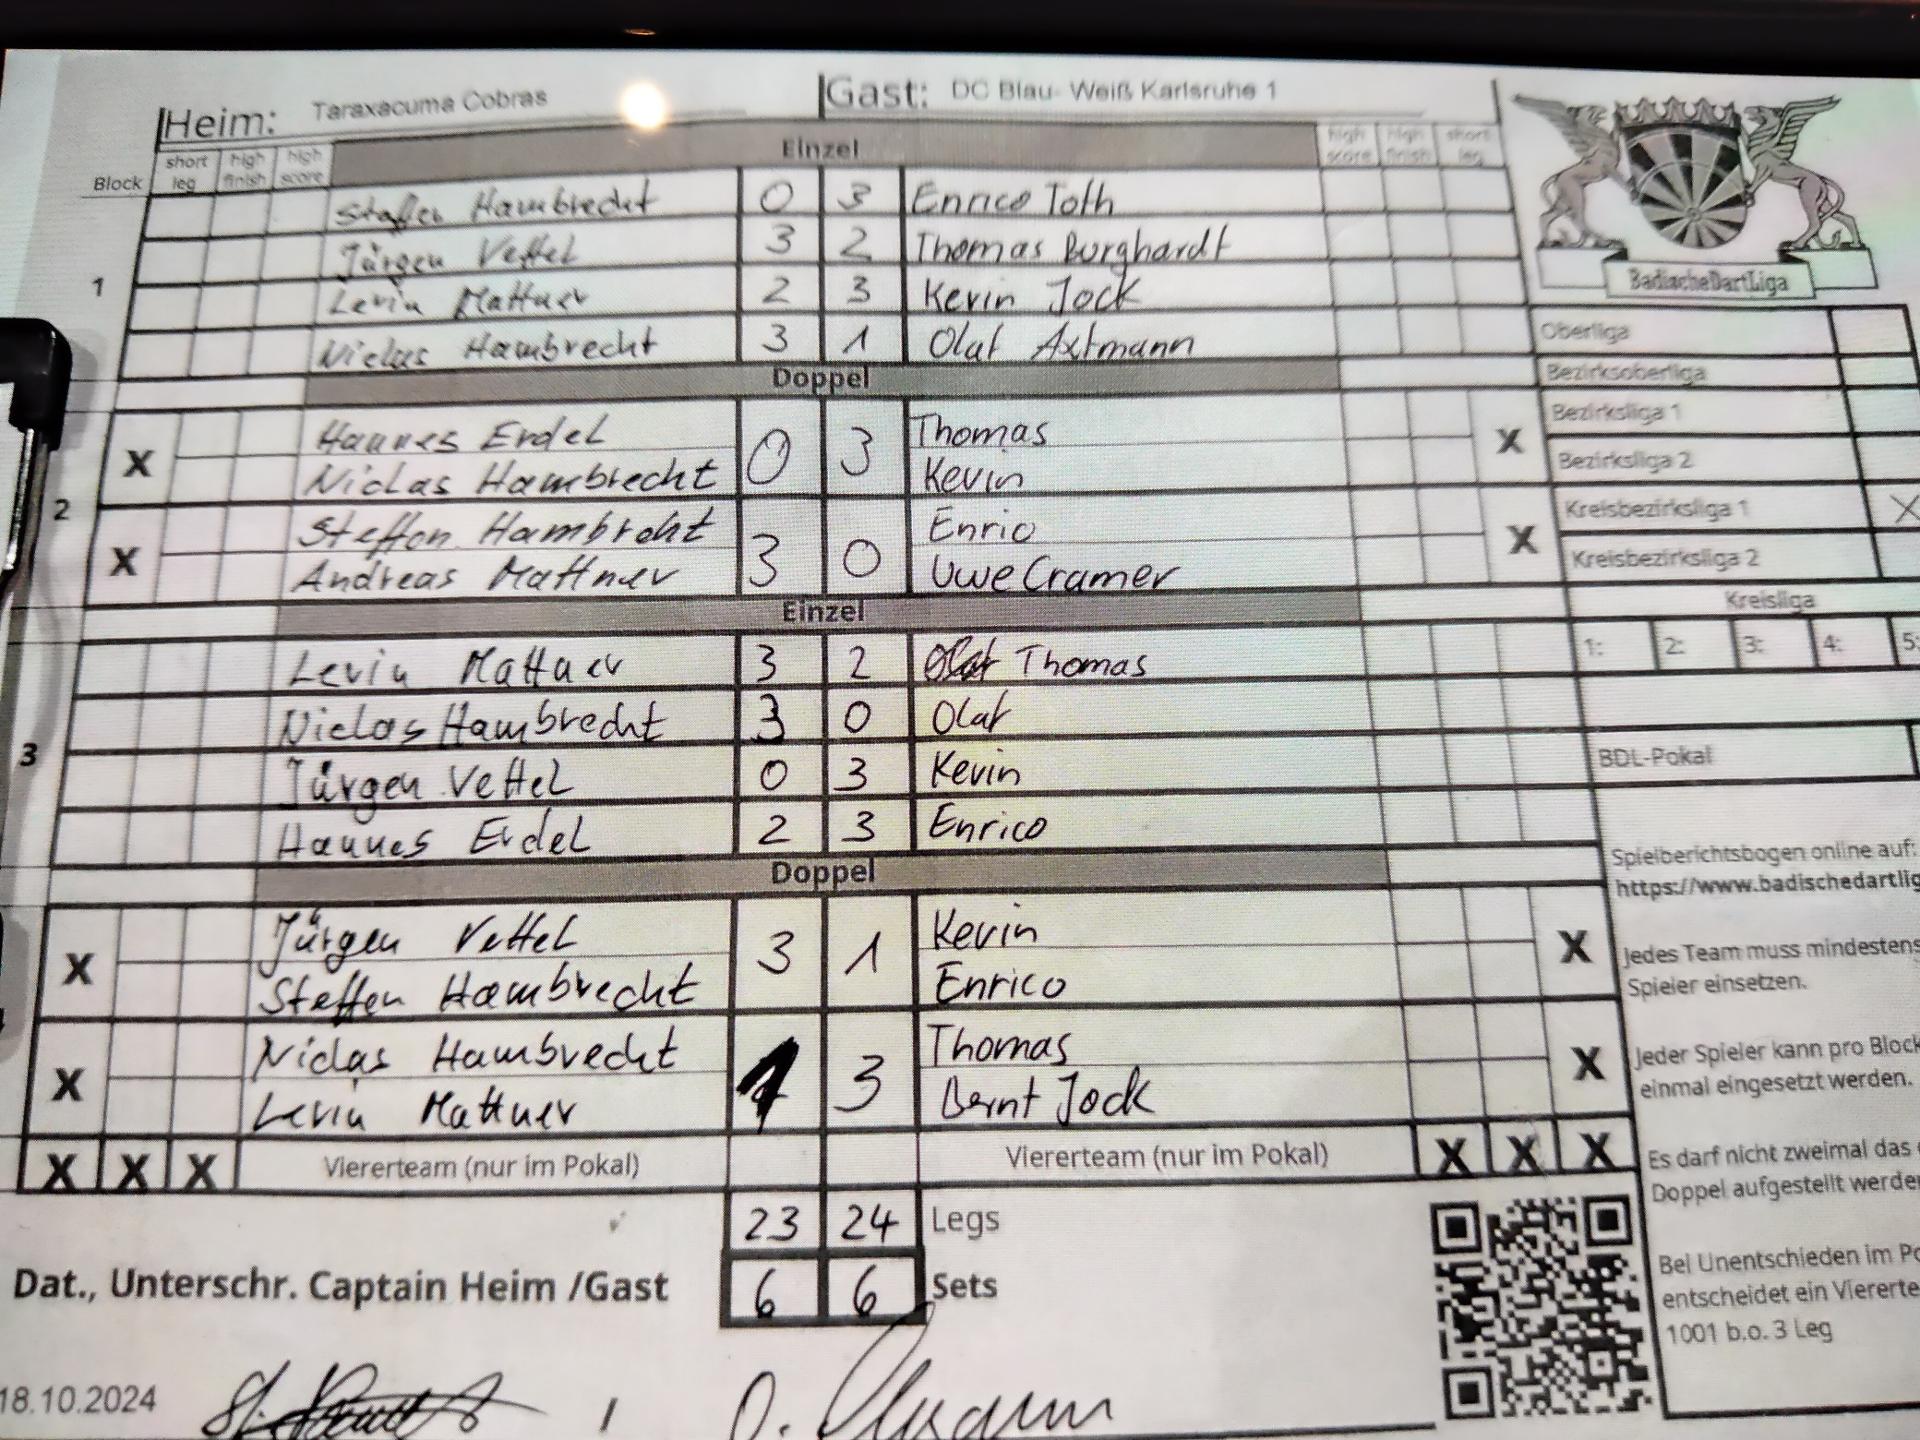 Heim: Taraxacuma Cobras Gast: DC Blau- Weiß Karlsruhe 1
Block short leg high finish high score Einzel high score high finish short leg
Steffen Hambrecht 0 3 Enrico Toth
Jürgen Vettel 3 2 Thomas Burghardt
1
Levin Mattner 2 3 Kevin Jock
Niclas Hambrecht 3 1 Olaf Axtmann
Doppel
Hannes Erdel Thomas
X 0 3 X
Niclas Hambrecht Kevin
2
Steffen Hambrcht Enrio
X 3 0 X
Andreas Mattner Uwe Cramer
Einzel
Levin Mattner 3 2 Thomas
Niclas Hambrecht 3 0 Olaf
3
Jürgen Vettel 0 3 Kevin
Hannes Erdel 2 3 Enrico
Doppel
Jürgen Vettel Kevin
X 3 1 X
Steffen Hambrecht Enrico
Niclas Hambrecht Thomas
X 1 3 X
Levin Mattner Bernt Jock
X X X Viererteam (nur im Pokal) Viererteam (nur im Pokal) X X X
23 24 Legs
6 6 Sets
Dat., Unterschr. Captain Heim /Gast
18.10.2024 /
BadischeDartLiga
Oberliga
Bezirksoberliga
Bezirksliga 1
Bezirksliga 2
Kreisbezirksliga 1 X
Kreisbezirksliga 2
Kreisliga
1: 2: 3: 4: 5:
BDL-Pokal
Spielberichtsbogen online auf:
https://www.badischedartlig
Jedes Team muss mindestens
Spieler einsetzen.
Jeder Spieler kann pro Block
einmal eingesetzt werden.
Es darf nicht zweimal das
Doppel aufgestellt werde
Bei Unentschieden im Po
entscheidet ein Vierert
1001 b.o. 3 Leg